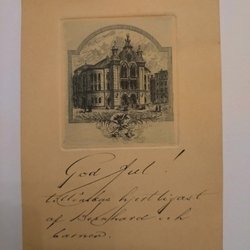 God Jul!
tillönskas hjertligast
af Bernhard och
barnen.